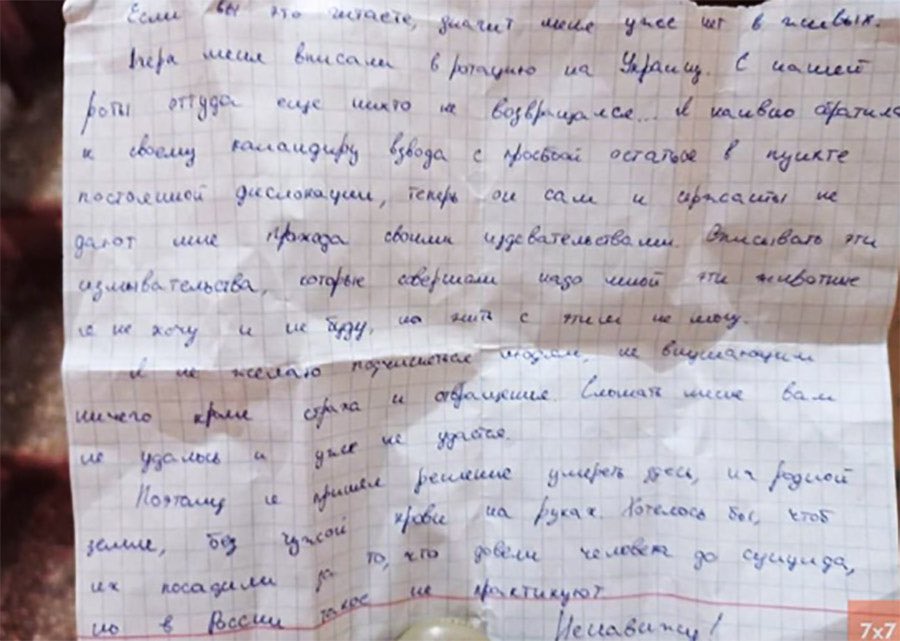 Если вы это читаете, значит меня уже нет в живых.
Вчера меня вписали в ротацию на Украину. С нашей
роты оттуда еще никто не возвращался... Я наивно обратился
к своему командиру взвода с просьбой остаться в пункте
постоянной дислокации, теперь он сам и сержанты не
дают мне прохода своими издевательствами. Описывать эти
измывательства, которые совершали надо мной эти животные
я не хочу и не буду, но жить с этим не могу.
Я не желаю подчиняться людям, не внушающим
ничего кроме страха и отвращения. Сломать меня вам
не удалось и уже не удастся.
Поэтому я принял решение умереть здесь, на родной
земле, без чужой крови на руках. Хотелось бы, чтоб
их посадили за то, что довели человека до суицида,
но в России такое не практикуют
Ненавижу!
7x7